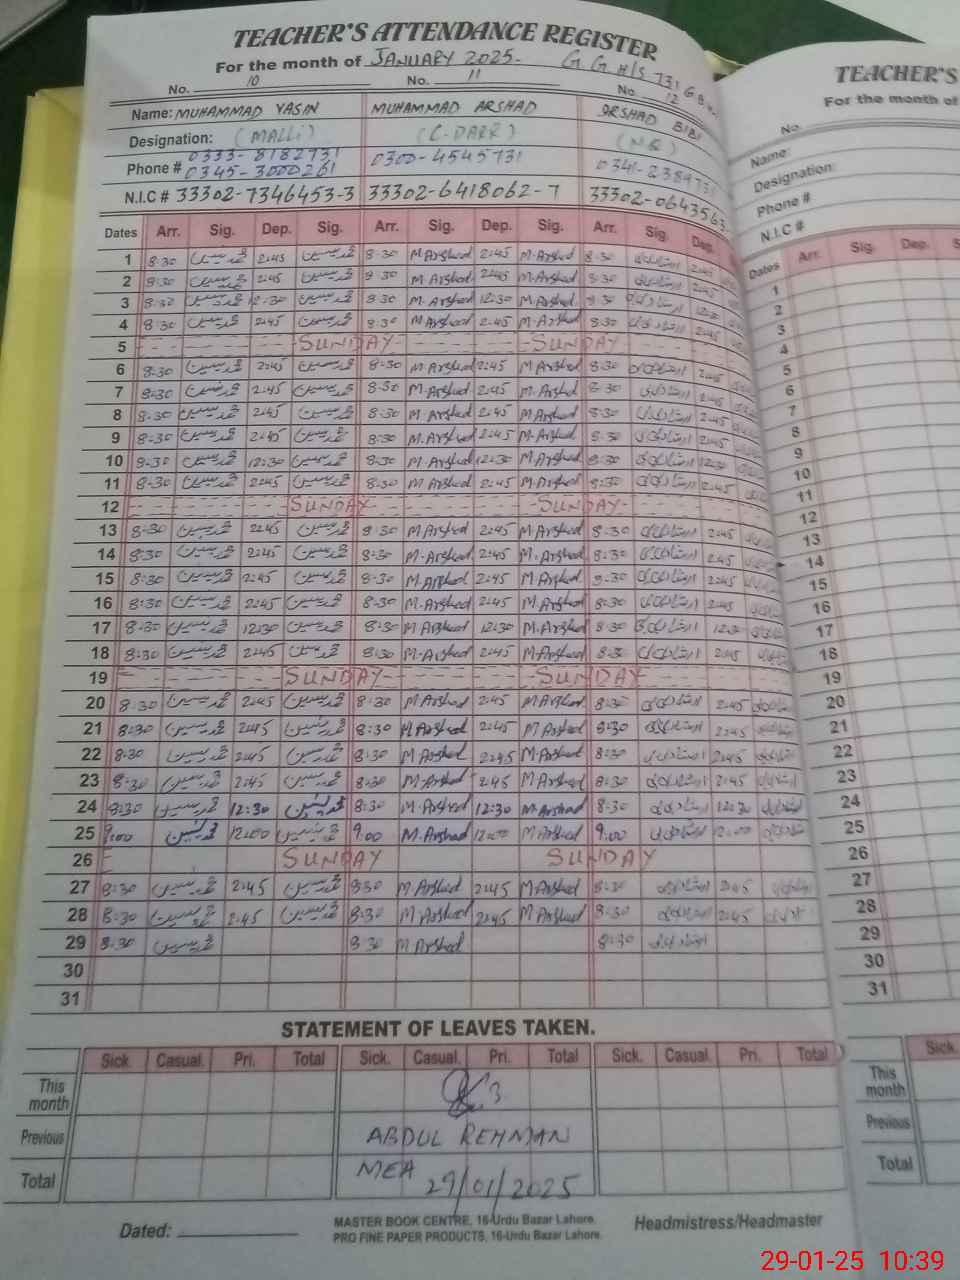 TEACHER'S ATTENDANCE REGISTER
For the month of JANUARY 2025. G.G.H/S 731 G.B
No. 10 No. 11 No. 12
Name: MUHAMMAD YASIN MUHAMMAD ARSHAD ARSHAD BIBI
Designation: (MALLI) (C-DARR) (NQ)
Phone # 0333-8182731 0300-4545731 0341-2389731
0345-3000261
N.I.C # 33302-7346453-3 33302-6418062-7 33302-0643563-
Dates Arr. Sig. Dep. Sig. Arr. Sig. Dep. Sig. Arr. Sig. Dep.
1 8:30 محمد یسین 2:45 محمد یسین 8:30 M Arshad 2:45 M. Arshad 8:30 ارشاد بی بی 2:45
2 8:30 محمد یسین 2:45 محمد یسین 8:30 M. Arshad 2:45 M. Arshad 8:30 ارشاد بی بی 2:45
3 8:30 محمد یسین 12:30 محمد یسین 8:30 M. Arshad 12:30 M. Arshad 8:30 ارشاد بی بی 12:30
4 8:30 محمد یسین 2:45 محمد یسین 8:30 M Arshad 2:45 M. Arshad 8:30 ارشاد بی بی 2:45
5 SUNDAY SUNDAY
6 8:30 محمد یسین 2:45 محمد یسین 8:30 M. Arshad 2:45 M Arshad 8:30 ارشاد بی بی 2:45
7 8:30 محمد یسین 2:45 محمد یسین 8:30 M. Arshad 2:45 M. Arshad 8:30 ارشاد بی بی 2:45
8 8:30 محمد یسین 2:45 محمد یسین 8:30 M. Arshad 2:45 M Arshad 8:30 ارشاد بی بی 2:45
9 8:30 محمد یسین 2:45 محمد یسین 8:30 M. Arshad 2:45 M. Arshad 8:30 ارشاد بی بی 2:45
10 8:30 محمد یسین 12:30 محمد یسین 8:30 M. Arshad 12:30 M. Arshad 8:30 ارشاد بی بی 12:30
11 8:30 محمد یسین 2:45 محمد یسین 8:30 M. Arshad 2:45 M. Arshad 8:30 ارشاد بی بی 2:45
12 SUNDAY SUNDAY
13 8:30 محمد یسین 2:45 محمد یسین 8:30 M Arshad 2:45 M Arshad 8:30 ارشاد بی بی 2:45
14 8:30 محمد یسین 2:45 محمد یسین 8:30 M. Arshad 2:45 M. Arshad 8:30 ارشاد بی بی 2:45
15 8:30 محمد یسین 2:45 محمد یسین 8:30 M Arshad 2:45 M Arshad 8:30 ارشاد بی بی 2:45
16 8:30 محمد یسین 2:45 محمد یسین 8:30 M. Arshad 2:45 M. Arshad 8:30 ارشاد بی بی 2:45
17 8:30 محمد یسین 12:30 محمد یسین 8:30 M Arshad 12:30 M. Arshad 8:30 ارشاد بی بی 12:30
18 8:30 محمد یسین 2:45 محمد یسین 8:30 M. Arshad 2:45 M. Arshad 8:30 ارشاد بی بی 2:45
19 SUNDAY SUNDAY
20 8:30 محمد یسین 2:45 محمد یسین 8:30 M Arshad 2:45 M Arshad 8:30 ارشاد بی بی 2:45
21 8:30 محمد یسین 2:45 محمد یسین 8:30 M Arshad 2:45 M Arshad 8:30 ارشاد بی بی 2:45
22 8:30 محمد یسین 2:45 محمد یسین 8:30 M Arshad 2:45 M Arshad 8:30 ارشاد بی بی 2:45
23 8:30 محمد یسین 2:45 محمد یسین 8:30 M. Arshad 2:45 M Arshad 8:30 ارشاد بی بی 2:45
24 8:30 محمد یسین 12:30 محمد یسین 8:30 M. Arshad 12:30 M. Arshad 8:30 ارشاد بی بی 12:30
25 9:00 محمد یسین 12:00 محمد یسین 9:00 M. Arshad 12:00 M. Arshad 9:00 ارشاد بی بی 12:00
26 SUNDAY SUNDAY
27 8:30 محمد یسین 2:45 محمد یسین 8:30 M Arshad 2:45 M Arshad 8:30 ارشاد بی بی 2:45
28 8:30 محمد یسین 2:45 محمد یسین 8:30 M Arshad 2:45 M Arshad 8:30 ارشاد بی بی 2:45
29 8:30 محمد یسین 8:30 M Arshad 8:30 ارشاد بی بی
30
31
STATEMENT OF LEAVES TAKEN.
Sick. Casual. Pri. Total Sick. Casual. Pri. Total Sick. Casual. Pri. Total
This month
Previous
Total
ABDUL REHMAN
MEA 29/01/2025
Dated:
MASTER BOOK CENTRE, 16-Urdu Bazar Lahore.
PRO FINE PAPER PRODUCTS, 16-Urdu Bazar Lahore.
Headmistress/Headmaster
TEACHER'S
For the month of
No.
Name:
Designation:
Phone #
N.I.C #
Dates Arr. Sig. Dep. S
1
2
3
4
5
6
7
8
9
10
11
12
13
14
15
16
17
18
19
20
21
22
23
24
25
26
27
28
29
30
31
Sick.
This month
Previous
Total
29-01-25 10:39